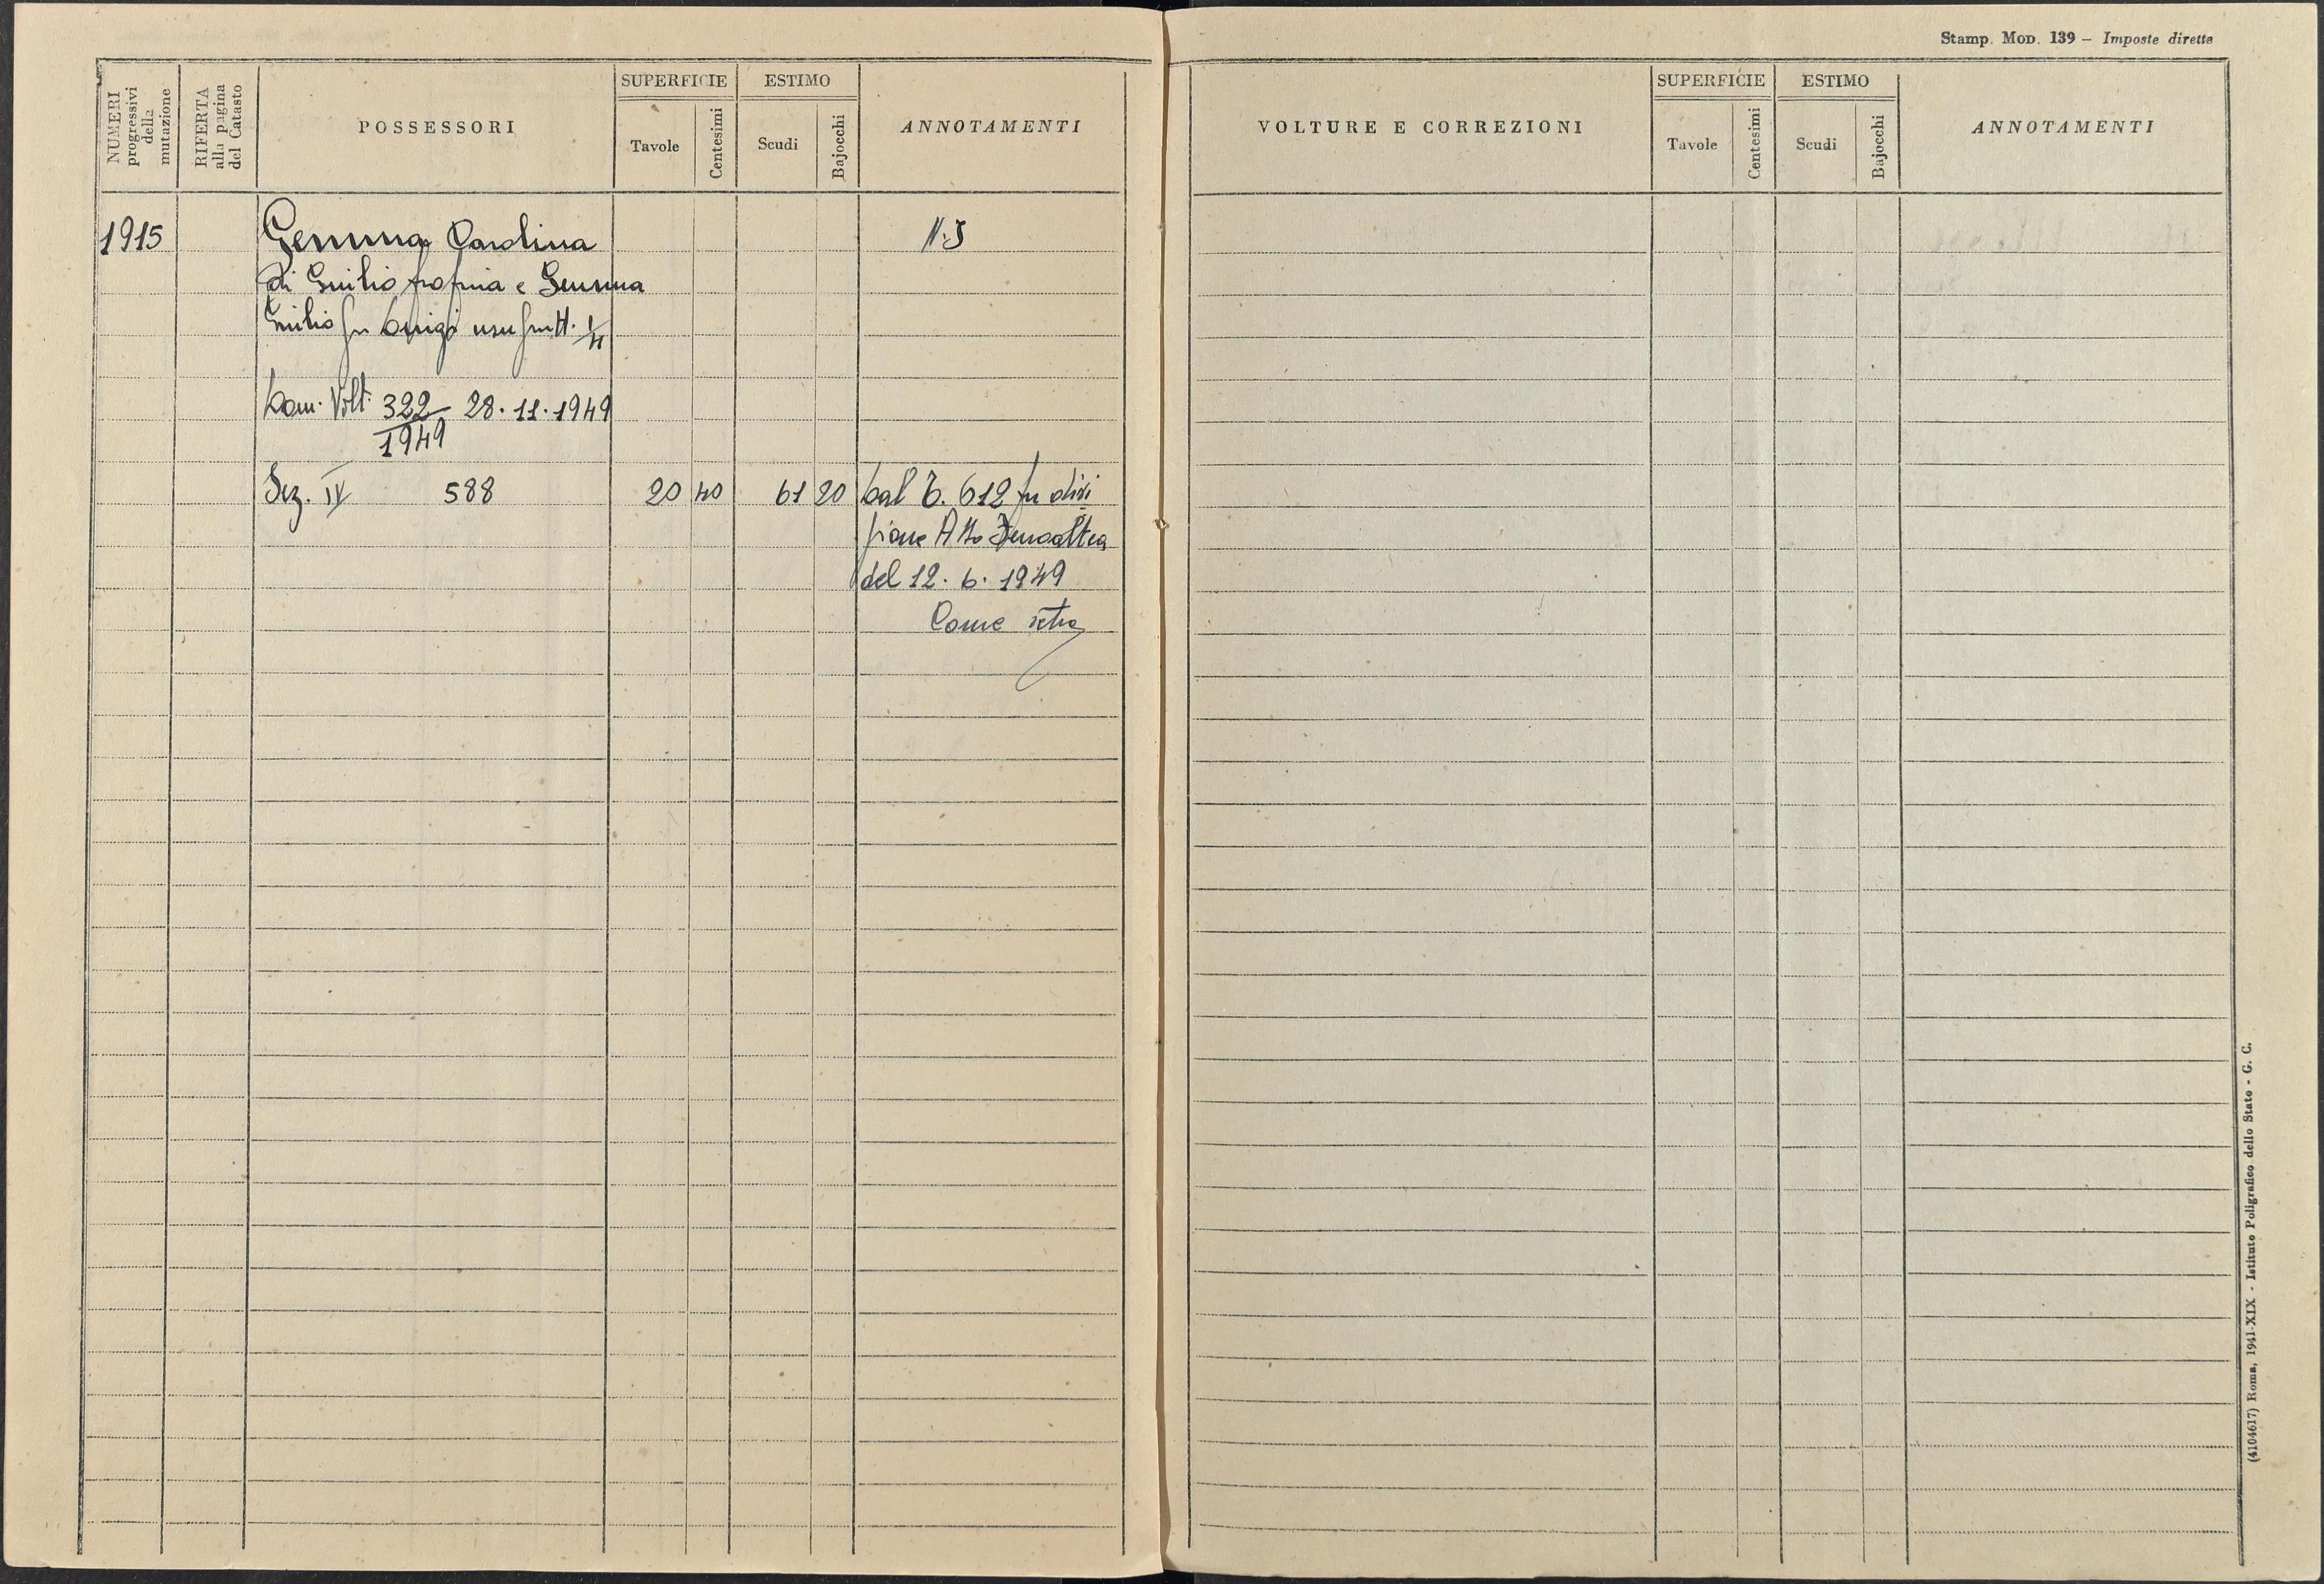 Stamp. Mod. 139 – Imposte dirette
NUMERI progressivi della mutazione
RIFERTA alla pagina del Catasto
POSSESSORI
SUPERFICIE
Tavole
Centesimi
ESTIMO
Scudi
Bajocchi
ANNOTAMENTI
VOLTURE E CORREZIONI
SUPERFICIE
Tavole
Centesimi
ESTIMO
Scudi
Bajocchi
ANNOTAMENTI
1915 Gemma Carolina
di Emilio propria e Gemma
Emilio fu Luigi usufrutt.
Dom. Volt. 322/1949 28.11.1949
Sez. IV 588 20 40 61 20 Dal 612 fu divi
sione Atto
del 12.6.1949
Come retro
(410461?) Roma, 1941-XIX - Istituto Poligrafico dello Stato - G. C.